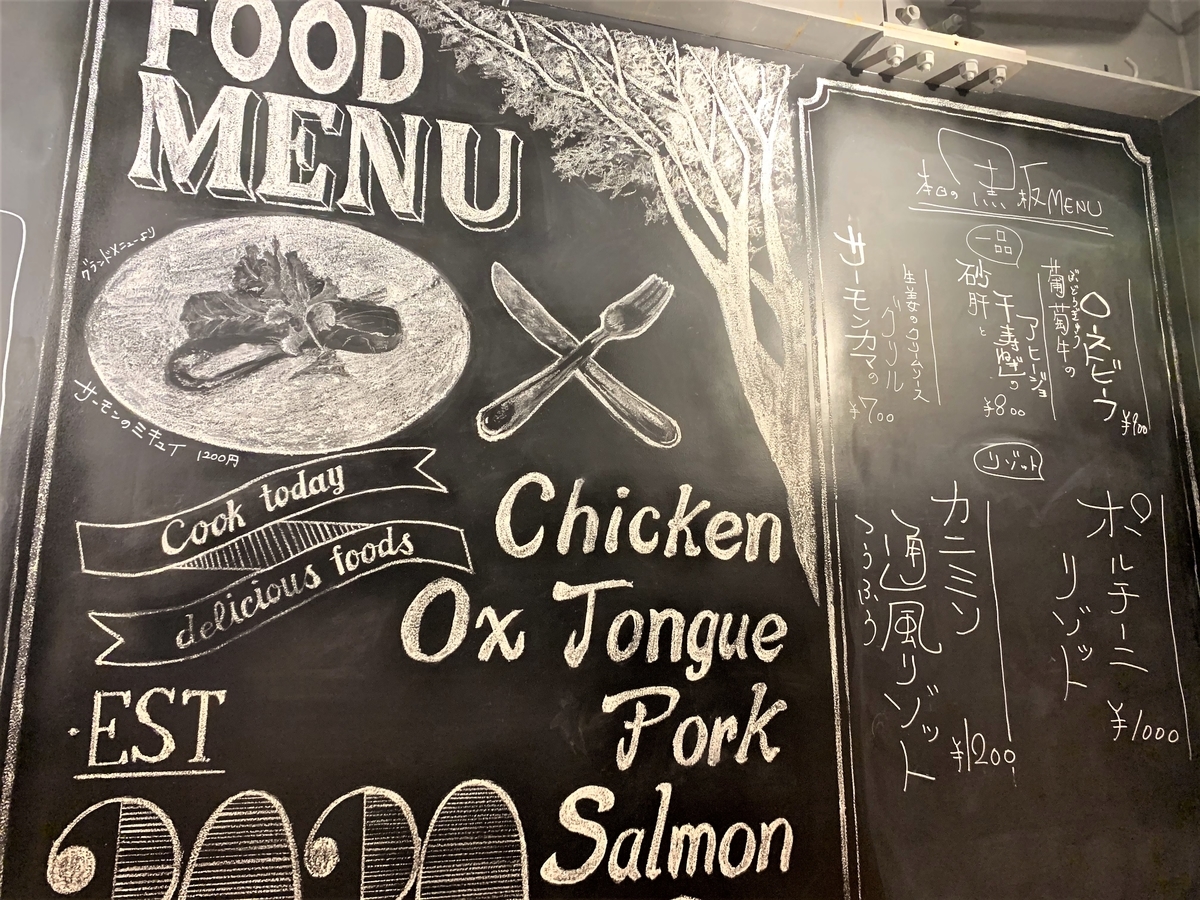 FOOD
MENU
グランドメニューより
サーモンのミキュイ 1200円
Cook today
delicious foods
EST
2020
Chicken
Ox Tongue
Pork
Salmon
本日の黒板MENU
一品
ぶどうぎゅう
葡萄牛の
ローストビーフ
¥900
砂肝と
千寿ねぎの
アヒージョ
¥800
サーモンカマの
グリル
生姜のクリームソース
¥700
リゾット
ポルチーニ
リゾット
¥1000
カニミソ
通風リゾット
つうふう
¥1200